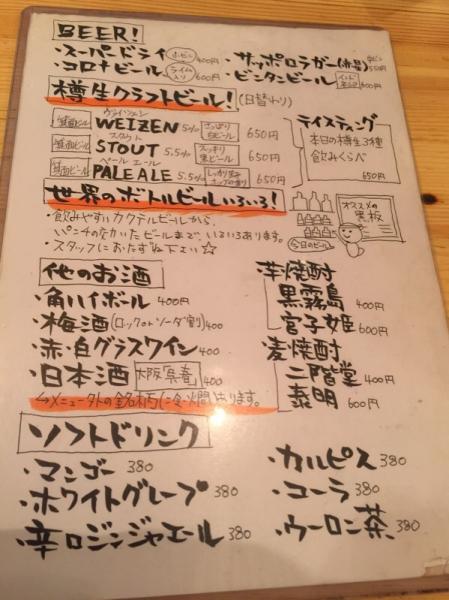 BEER!
・スーパードライ 小ビン 400円
・サッポロラガー(赤星) 中ビン 550円
・コロナビール ライム入り 600円
・ビンタンビール 600円
樽生クラフトビール! (日替わり)
箕面ビール ヴァイツェン WEIZEN 5.5% さっぱり白ビール 650円
箕面ビール スタウト STOUT 5.5% スッキリ黒ビール 650円
箕面ビール ペールエール PALE ALE 5.5% 650円
テイスティング
本日の樽生3種
飲みくらべ
650円
世界のボトルビールいろいろ!
・飲みやすいカクテルビールから、
パンチの効いたビールまで、いろいろあります。
・スタッフにおたずね下さい☆
オススメの黒板
今日のビール
他のお酒
・角ハイボール 400円
・梅酒(ロックorソーダ割) 400
・赤・白グラスワイン 400
・日本酒 大阪「呉春」 400
→メニュー外の銘柄(冷・燗)あります。
・芋焼酎
黒霧島 400円
宮子姫 600円
・麦焼酎
二階堂 400円
泰明 600円
ソフトドリンク
・マンゴー 380
・ホワイトグレープ 380
・辛口ジンジャエール 380
・カルピス 380
・コーラ 380
・ウーロン茶 380